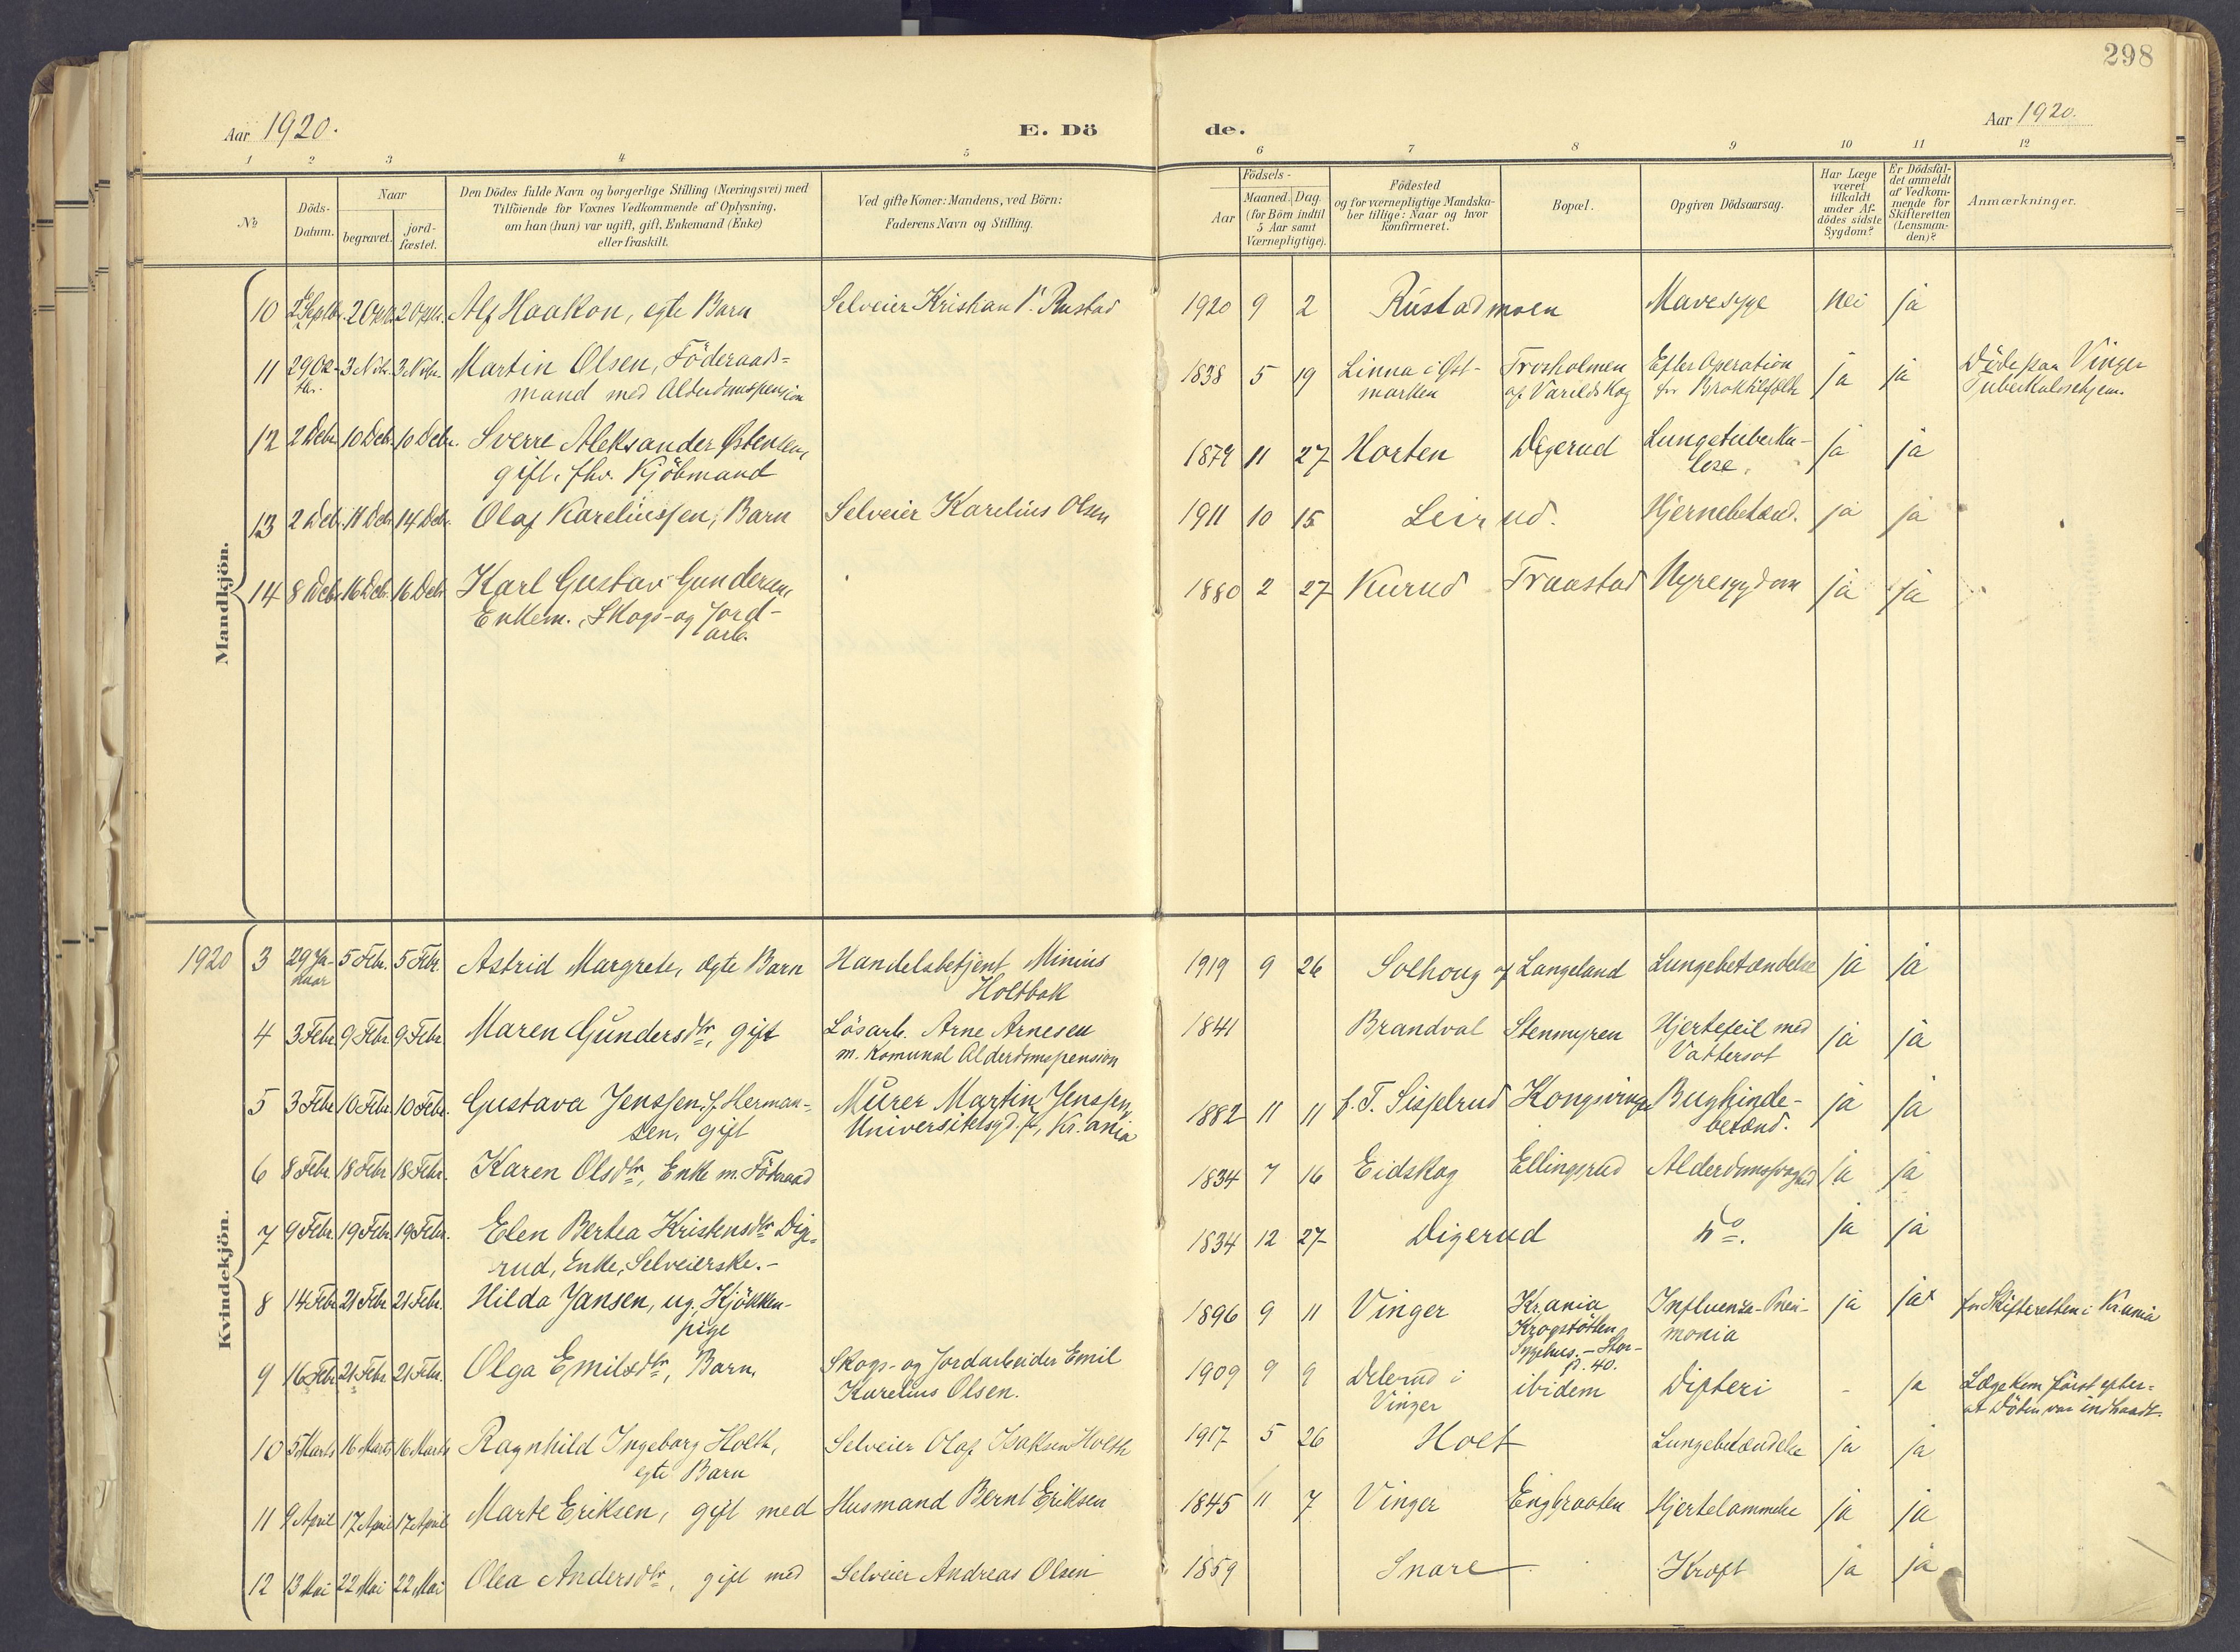 298
Aar 1920. E. Dö de. Aar 1920.
1 2 3 4 5 6 7 8 9 10 11 12
№ Döds-Datum. Naar begravet. jord-fæstet. Den Dödes fulde Navn og borgerlige Stilling (Næringsvei) med Tilföiende for Voxnes Vedkommende af Oplysning, om han (hun) var ugift, gift, Enkemand (Enke) eller fraskilt. Ved gifte Koner: Mandens, ved Börn: Faderens Navn og Stilling. Födsels- Aar Maaned. Dag. (for Börn indtil 5 Aar samt Værnepligtige). Födested og for værnepligtige Mandskaber tillige: Naar og hvor konfirmeret. Bopæl. Opgiven Dödsaarsag. Har Læge været tilkaldt under Afdödes sidste Sygdom? Er Dödsfaldet anmeldt af Vedkommende for Skifteretten (Lensmanden)? Anmærkninger.
Mandkjön.
10 Alf Haakon, egte Barn Selveier Kristian P. Rustad 1920 9 2 Rustadmoen Mavesyge nei ja
11 29 Oktbr. 3 Nvbr. 3 Nvbr. Martin Olsen, Föderaads-
mand med Alderdomspension 1838 5 19 Linna i Øst-
marken af Varildskog Efter Operation
for ja ja Döde paa Vinger
Tuberkulosehjem.
12 2 Debr. 10 Debr. 10 Debr. Sverre Aleksander Østensen,
gift, fhv. Kjöbmand 1879 11 27 Horten Digerud Lungetuberku-
lose. ja ja
13 2 Debr. 14 Debr. 14 Debr. Olaf Kareliussen, Barn Selveier Karelius Olsen 1911 10 15 Leirud. Hjernebetænd. ja ja
14 8 Debr. 16 Debr. 16 Debr. Karl Gustav Gundersen,
Enkem., Skogs- og Jord-
arb. 1880 2 27 Kurud Traastad Nyresygdom ja ja
Kvindekjön.
1920 3 29 Ja-
nuar 5 Febr. 5 Febr. Astrid Margrete, egte Barn Handelsbetjent Minius
Holtbak 1919 9 26 Solhoug af Langeland Lungebetændelse ja ja
4 3 Febr. 9 Febr. 9 Febr. Maren Gundersdtr, gift Lösarb. Arne Arnesen
m. Komunal Alderdomspension 1841 Brandval Stenmyren Hjertefeil med
Vattersot ja ja
5 3 Febr. 10 Febr. 10 Febr. Gustava Jenssen, f. Herman-
sen, gift Murer Martin Jenssen,
Kr.ania 1882 11 11 f. T. Sisselrud Kongsvinger Bughinde-
betænd. ja ja
6 8 Febr. 18 Febr. 18 Febr. Karen Olsdtr, Enke m. Föderaad 1834 7 16 Eidskog Ellingsrud Alderdomssvaghed ja ja
7 9 Febr. 19 Febr. 19 Febr. Elen Bertea Kristensdtr Dige-
rud, Enke, Selveierske.- 1834 12 27 Digerud do. ja ja
8 14 Febr. 21 Febr. 21 Febr. Hilda Jansen, ug., Kjökken-
pige 1896 9 11 Vinger Kr.ania
Krogstötten
Sygehus. - Stor-
g. 40. Influenza-Pneu-
monia ja jax for Skifteretten i Kr.ania
9 16 Febr. 21 Febr. 21 Febr. Olga Emilsdtr, Barn, Skogs- og Jordarbeider Emil
Karelius Olsen. 1909 9 9 Delerud i
Vinger ibidem Difteri - ja Læge kom först efter-
at Döden var indtraadt.
10 5 Marts 16 Marts 16 Marts Ragnhild Ingeborg Holth,
egte Barn Selveier Olaf Isaksen Holth 1917 5 26 Holt Lungebetændelse ja ja
11 9 April 17 April 17 April Marte Eriksen, gift med Husmand Bernt Eriksen 1845 11 7 Vinger Engbraaten Hjertelammelse ja ja
12 13 Mai 22 Mai 22 Mai Olea Andersdtr, gift med Selveier Andreas Olsen 1859 Snare Kræft ja ja